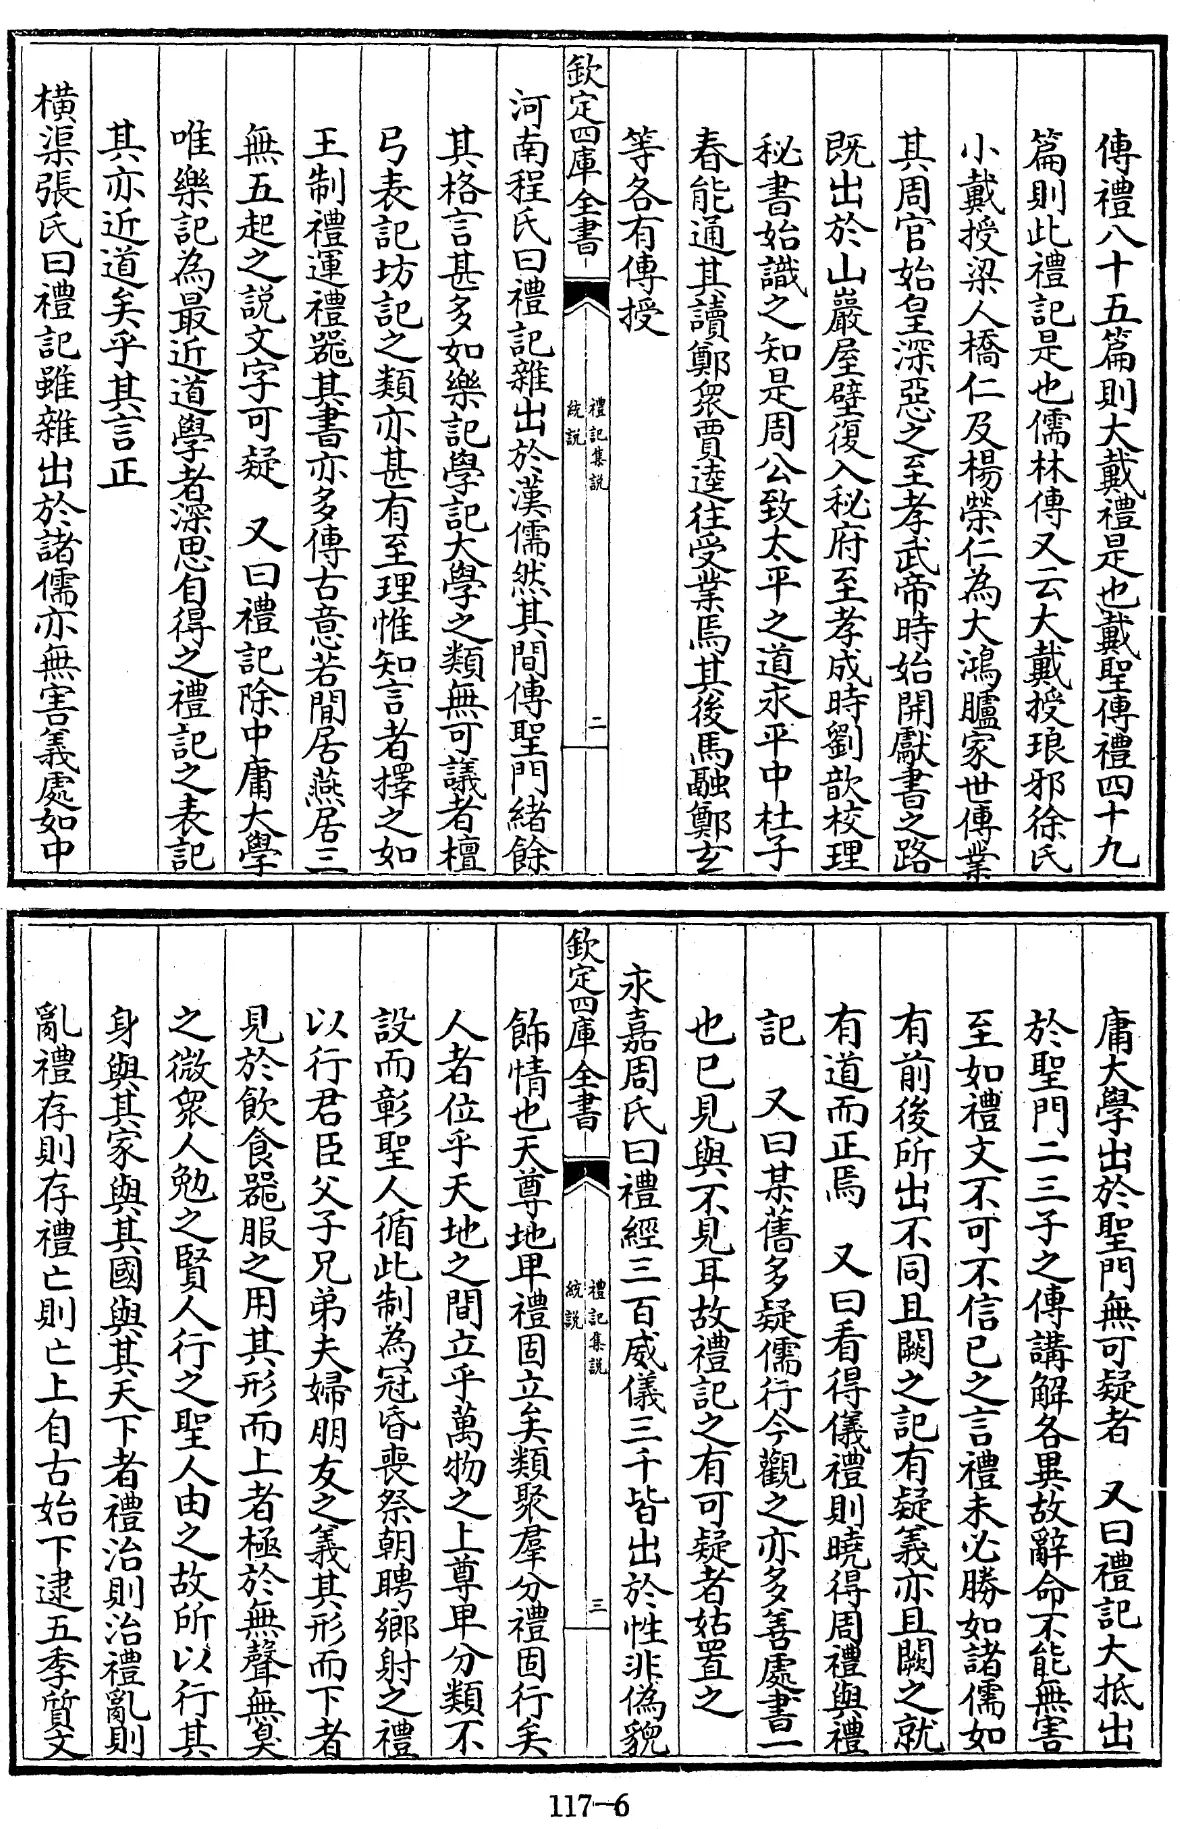 傳禮八十五篇則大戴禮是也戴聖傳禮四十九
篇則此禮記是也儒林傳又云大戴授琅邪徐氏
小戴授梁人橋仁及楊榮仁為大鴻臚家世傳業
其周官始皇深惡之至孝武帝時始開獻書之路
既出於山巖屋壁復入秘府至孝成時劉歆校理
秘書始識之知是周公致太平之道永平中杜子
春能通其讀鄭衆賈逵往受業焉其後馬融鄭玄
等各有傳授
欽定四庫全書
禮記集說
統說
二
河南程氏曰禮記雜出於漢儒然其間傳聖門緒餘
其格言甚多如樂記學記大學之類無可議者檀
弓表記坊記之類亦甚有至理惟知言者擇之如
王制禮運禮器其書亦多傳古意若閒居燕居三
無五起之說文字可疑 又曰禮記除中庸大學
唯樂記為最近道學者深思自得之禮記之表記
其亦近道矣乎其言正
橫渠張氏曰禮記雖雜出於諸儒亦無害義處如中
庸大學出於聖門無可疑者 又曰禮記大抵出
於聖門二三子之傳講解各異故辭命不能無害
至如禮文不可不信已之言禮未必勝如諸儒如
有前後所出不同且闕之記有疑義亦且闕之就
有道而正焉 又曰看得儀禮則曉得周禮與禮
記 又曰某舊多疑儒行今觀之亦多善處書一
也已見與不見耳故禮記之有可疑者姑置之
永嘉周氏曰禮經三百威儀三千皆出於性非偽貌
欽定四庫全書
禮記集說
統說
三
飾情也天尊地卑禮固立矣類聚羣分禮固行矣
人者位乎天地之間立乎萬物之上尊卑分類不
設而彰聖人循此制為冠昏喪祭朝聘鄉射之禮
以行君臣父子兄弟夫婦朋友之義其形而下者
見於飲食器服之用其形而上者極於無聲無臭
之微衆人勉之賢人行之聖人由之故所以行其
身與其家與其國與其天下者禮治則治禮亂則
亂禮存則存禮亡則亡上自古始下逮五季質文
117-6